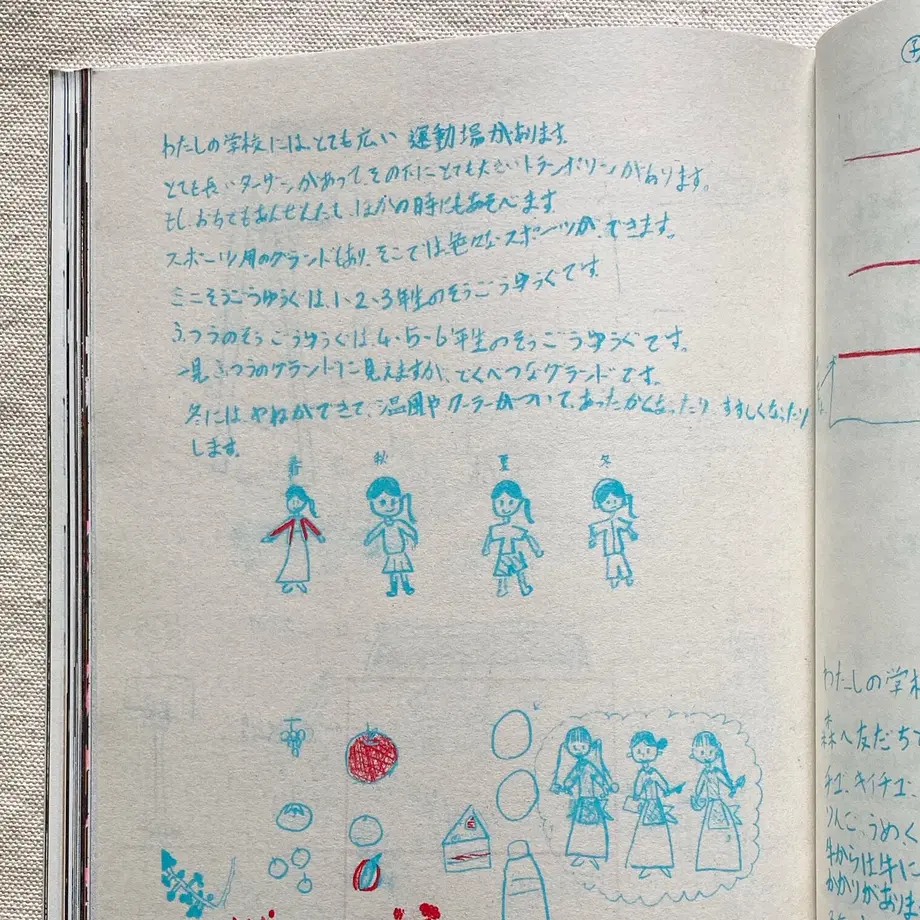 わたしの学校には、とても広い 運動場があります。
とても長いターザンがあって、その下にとても大きいトランポリンがあります。
もし、おちてもあんぜんだし、ほかの時にもあそべます。
スポーツ用のグランドもあり、そこでは色々なスポーツが、できます。
ミニそうごうゆうぐは、1・2・3年生のそうごうゆうぐです。
ふつうのそうごうゆうぐは4・5・6年生のそうごうゆうぐです。
一見ふつうのグランドに見えますが、とくべつなグランドです。
冬には、やねができて、温風やクーラーがついて、あったかくなったり、すずしくなったり
します。
春 秋 夏 冬
わたしの学校
森へ友だちで
チゴ、キイチゴ、
りんご、うめ、く
牛からは牛に
かかりがありま